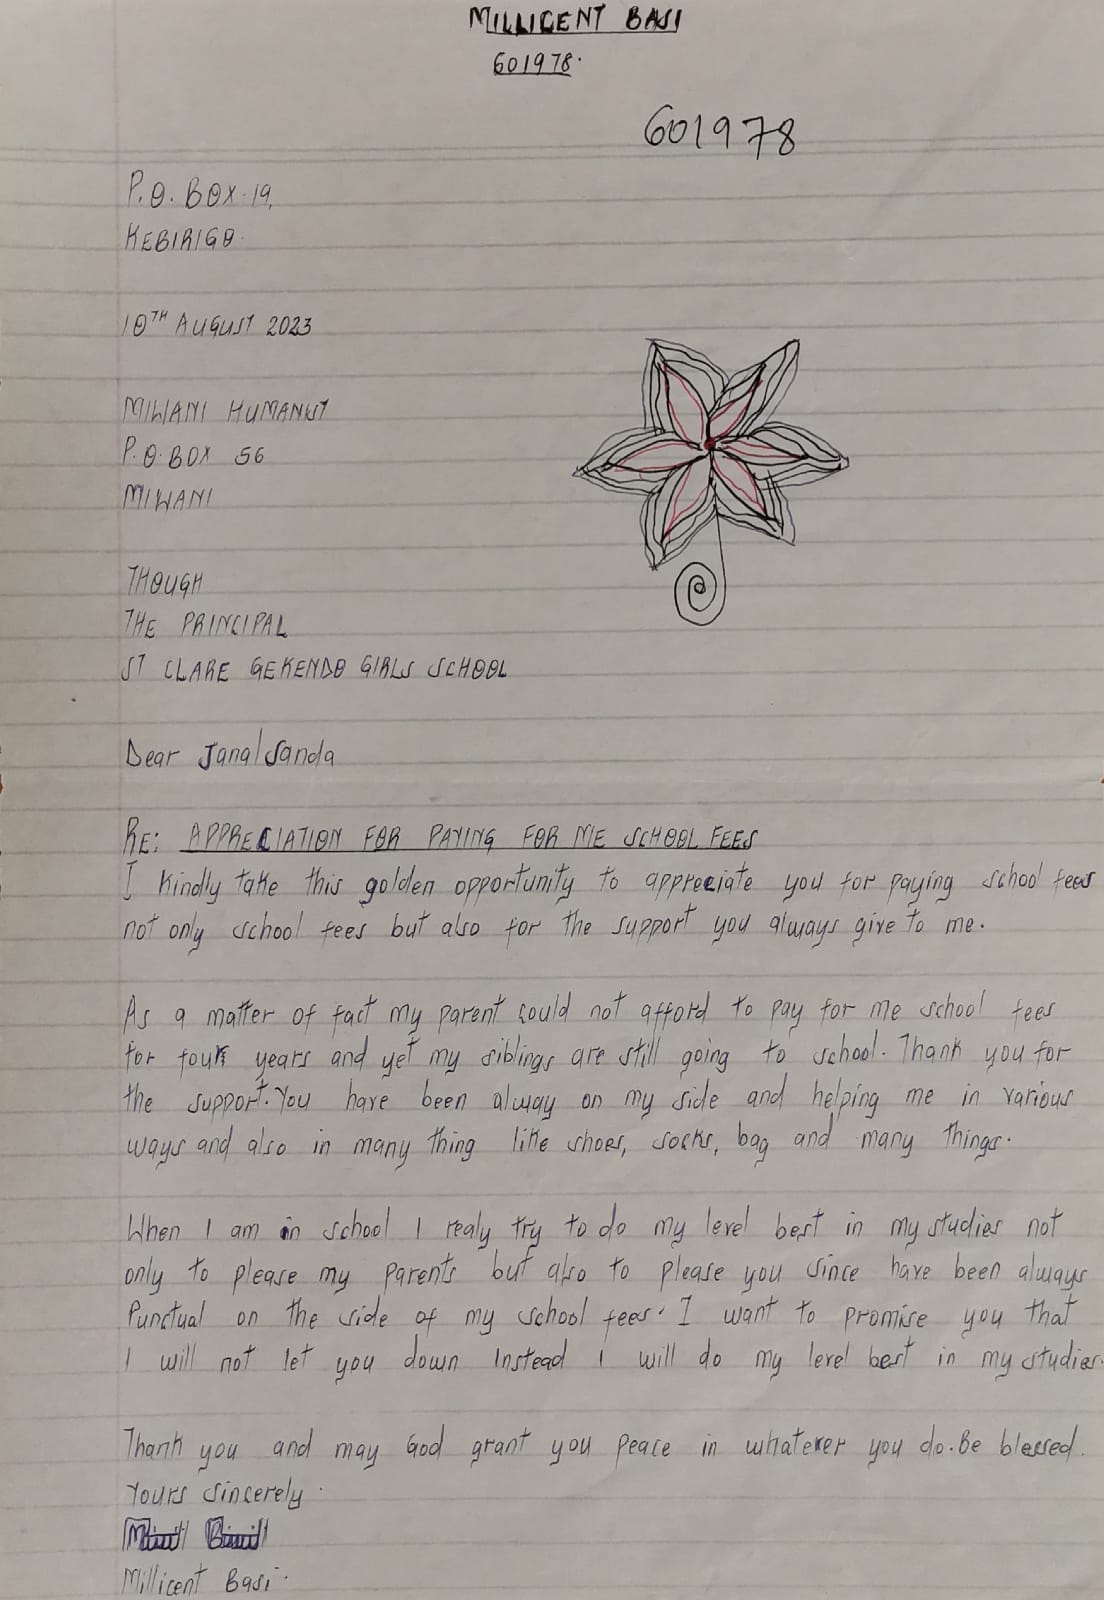 MILLICENT BASI
601978.
601978
P.O. BOX 19,
KEBIRIGO.
10TH AUGUST 2023
MIWANI HUMANUT
P.O. BOX 56
MIWANI
THOUGH
THE PRINCIPAL
ST CLARE GEKENDO GIRLS SCHOOL
Dear Jana/Sanda
RE: APPRECIATION FOR PAYING FOR ME SCHOOL FEES
I kindly take this golden opportunity to appreciate you for paying school fees
not only school fees but also for the support you always give to me.
As a matter of fact my parent could not afford to pay for me school fees
for four years and yet my siblings are still going to school. Thank you for
the support. You have been alway on my side and helping me in various
ways and also in many thing like shoes, socks, bag and many things.
When I am in school I realy try to do my level best in my studies not
only to please my parents but also to please you since have been always
Punctual on the side of my school fees. I want to promise you that
I will not let you down Instead I will do my level best in my studies.
Thank you and may God grant you peace in whatever you do. Be blessed.
Yours Sincerely.
Millicent Basi.